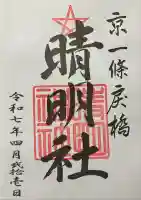 京一條戻橋
晴明社
令和七年四月弐拾壱日